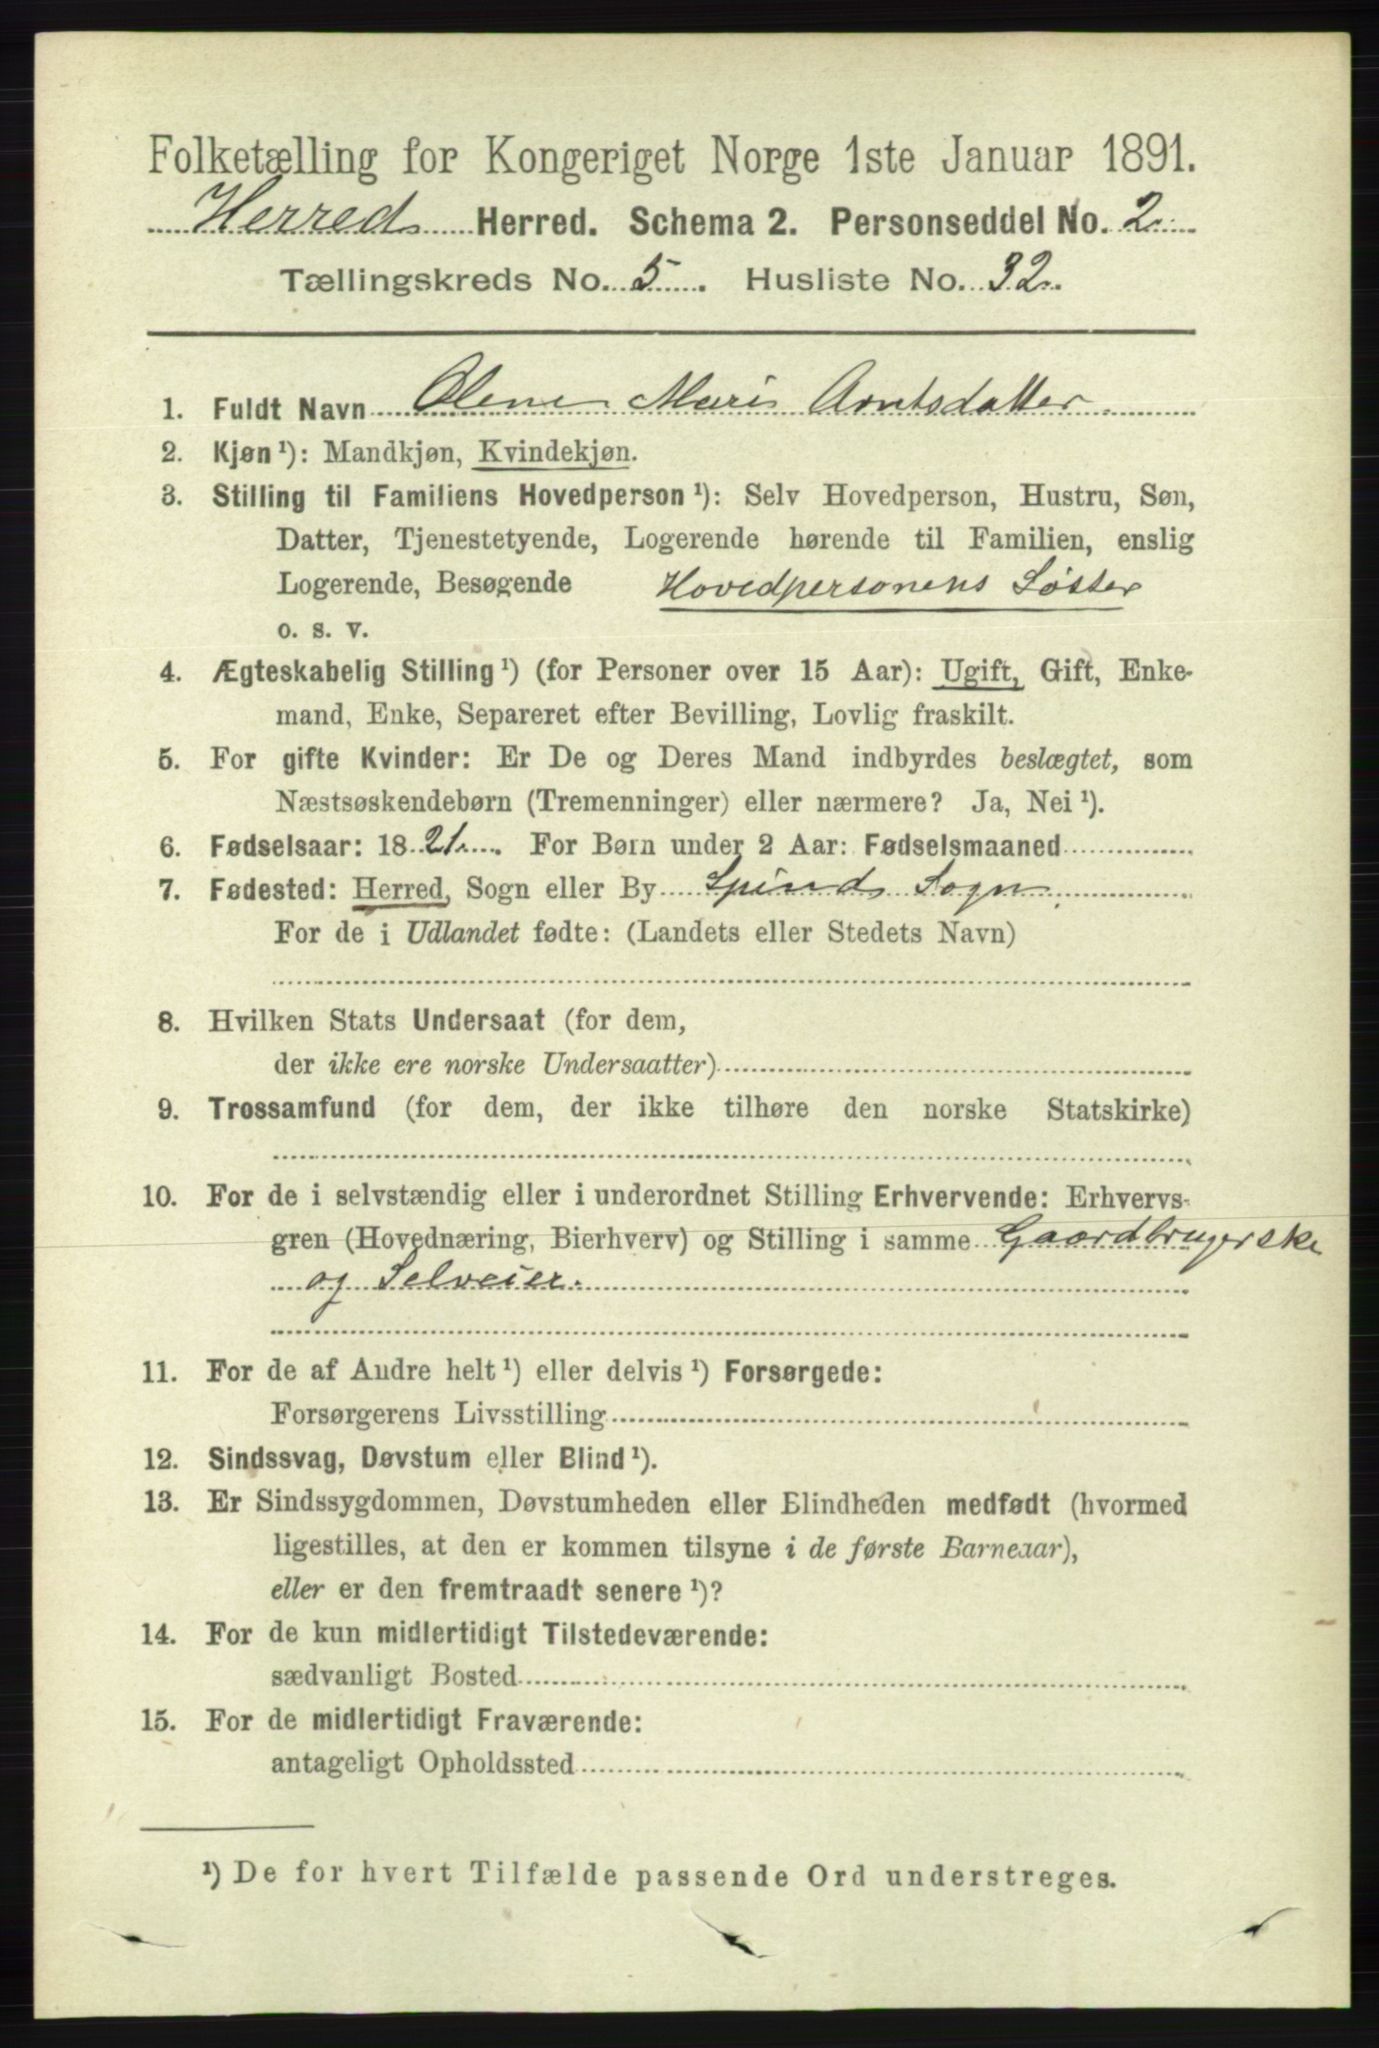 Folketælling for Kongeriget Norge 1ste Januar 1891.
Herreds Herred. Schema 2. Personseddel No. 2.
Tællingskreds No. 5. Husliste No. 32.
1. Fuldt Navn Olene Marie Arntsdatter.
2. Kjøn ¹): Mandkjøn, Kvindekjøn.
3. Stilling til Familiens Hovedperson ¹): Selv Hovedperson, Hustru, Søn,
Datter, Tjenestetyende, Logerende hørende til Familien, enslig
Logerende, Besøgende Hovedpersonens Søster
o. s. v.
4. Ægteskabelig Stilling ¹) (for Personer over 15 Aar): Ugift, Gift, Enke-
mand, Enke, Separeret efter Bevilling, Lovlig fraskilt.
5. For gifte Kvinder: Er De og Deres Mand indbyrdes beslægtet, som
Næstsøskendebørn (Tremenninger) eller nærmere? Ja, Nei ¹).
6. Fødselsaar: 1821. For Børn under 2 Aar: Fødselsmaaned
7. Fødested: Herred, Sogn eller By Spinds Sogn
For de i Udlandet fødte: (Landets eller Stedets Navn)
8. Hvilken Stats Undersaat (for dem,
der ikke ere norske Undersaatter)
9. Trossamfund (for dem, der ikke tilhøre den norske Statskirke)
10. For de i selvstændig eller i underordnet Stilling Erhvervende: Erhvervs-
gren (Hovednæring, Bierhverv) og Stilling i samme Gaardbrugerske
og Selveier.
11. For de af Andre helt ¹) eller delvis ¹) Forsørgede:
Forsørgerens Livsstilling
12. Sindssvag, Døvstum eller Blind ¹).
13. Er Sindssygdommen, Døvstumheden eller Blindheden medfødt (hvormed
ligestilles, at den er kommen tilsyne i de første Barneaar),
eller er den fremtraadt senere ¹)?
14. For de kun midlertidigt Tilstedeværende:
sædvanligt Bosted
15. For de midlertidigt Fraværende:
antageligt Opholdssted
¹) De for hvert Tilfælde passende Ord understreges.